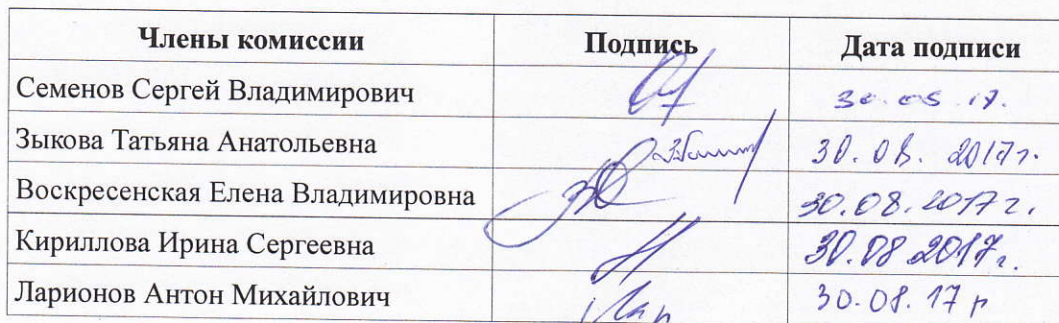 Члены комиссии Подпись Дата подписи
Семенов Сергей Владимирович 30.08.17.
Зыкова Татьяна Анатольевна 30.08.2017г.
Воскресенская Елена Владимировна 30.08.2017г.
Кириллова Ирина Сергеевна 30.08.2017г.
Ларионов Антон Михайлович 30.08.17 г